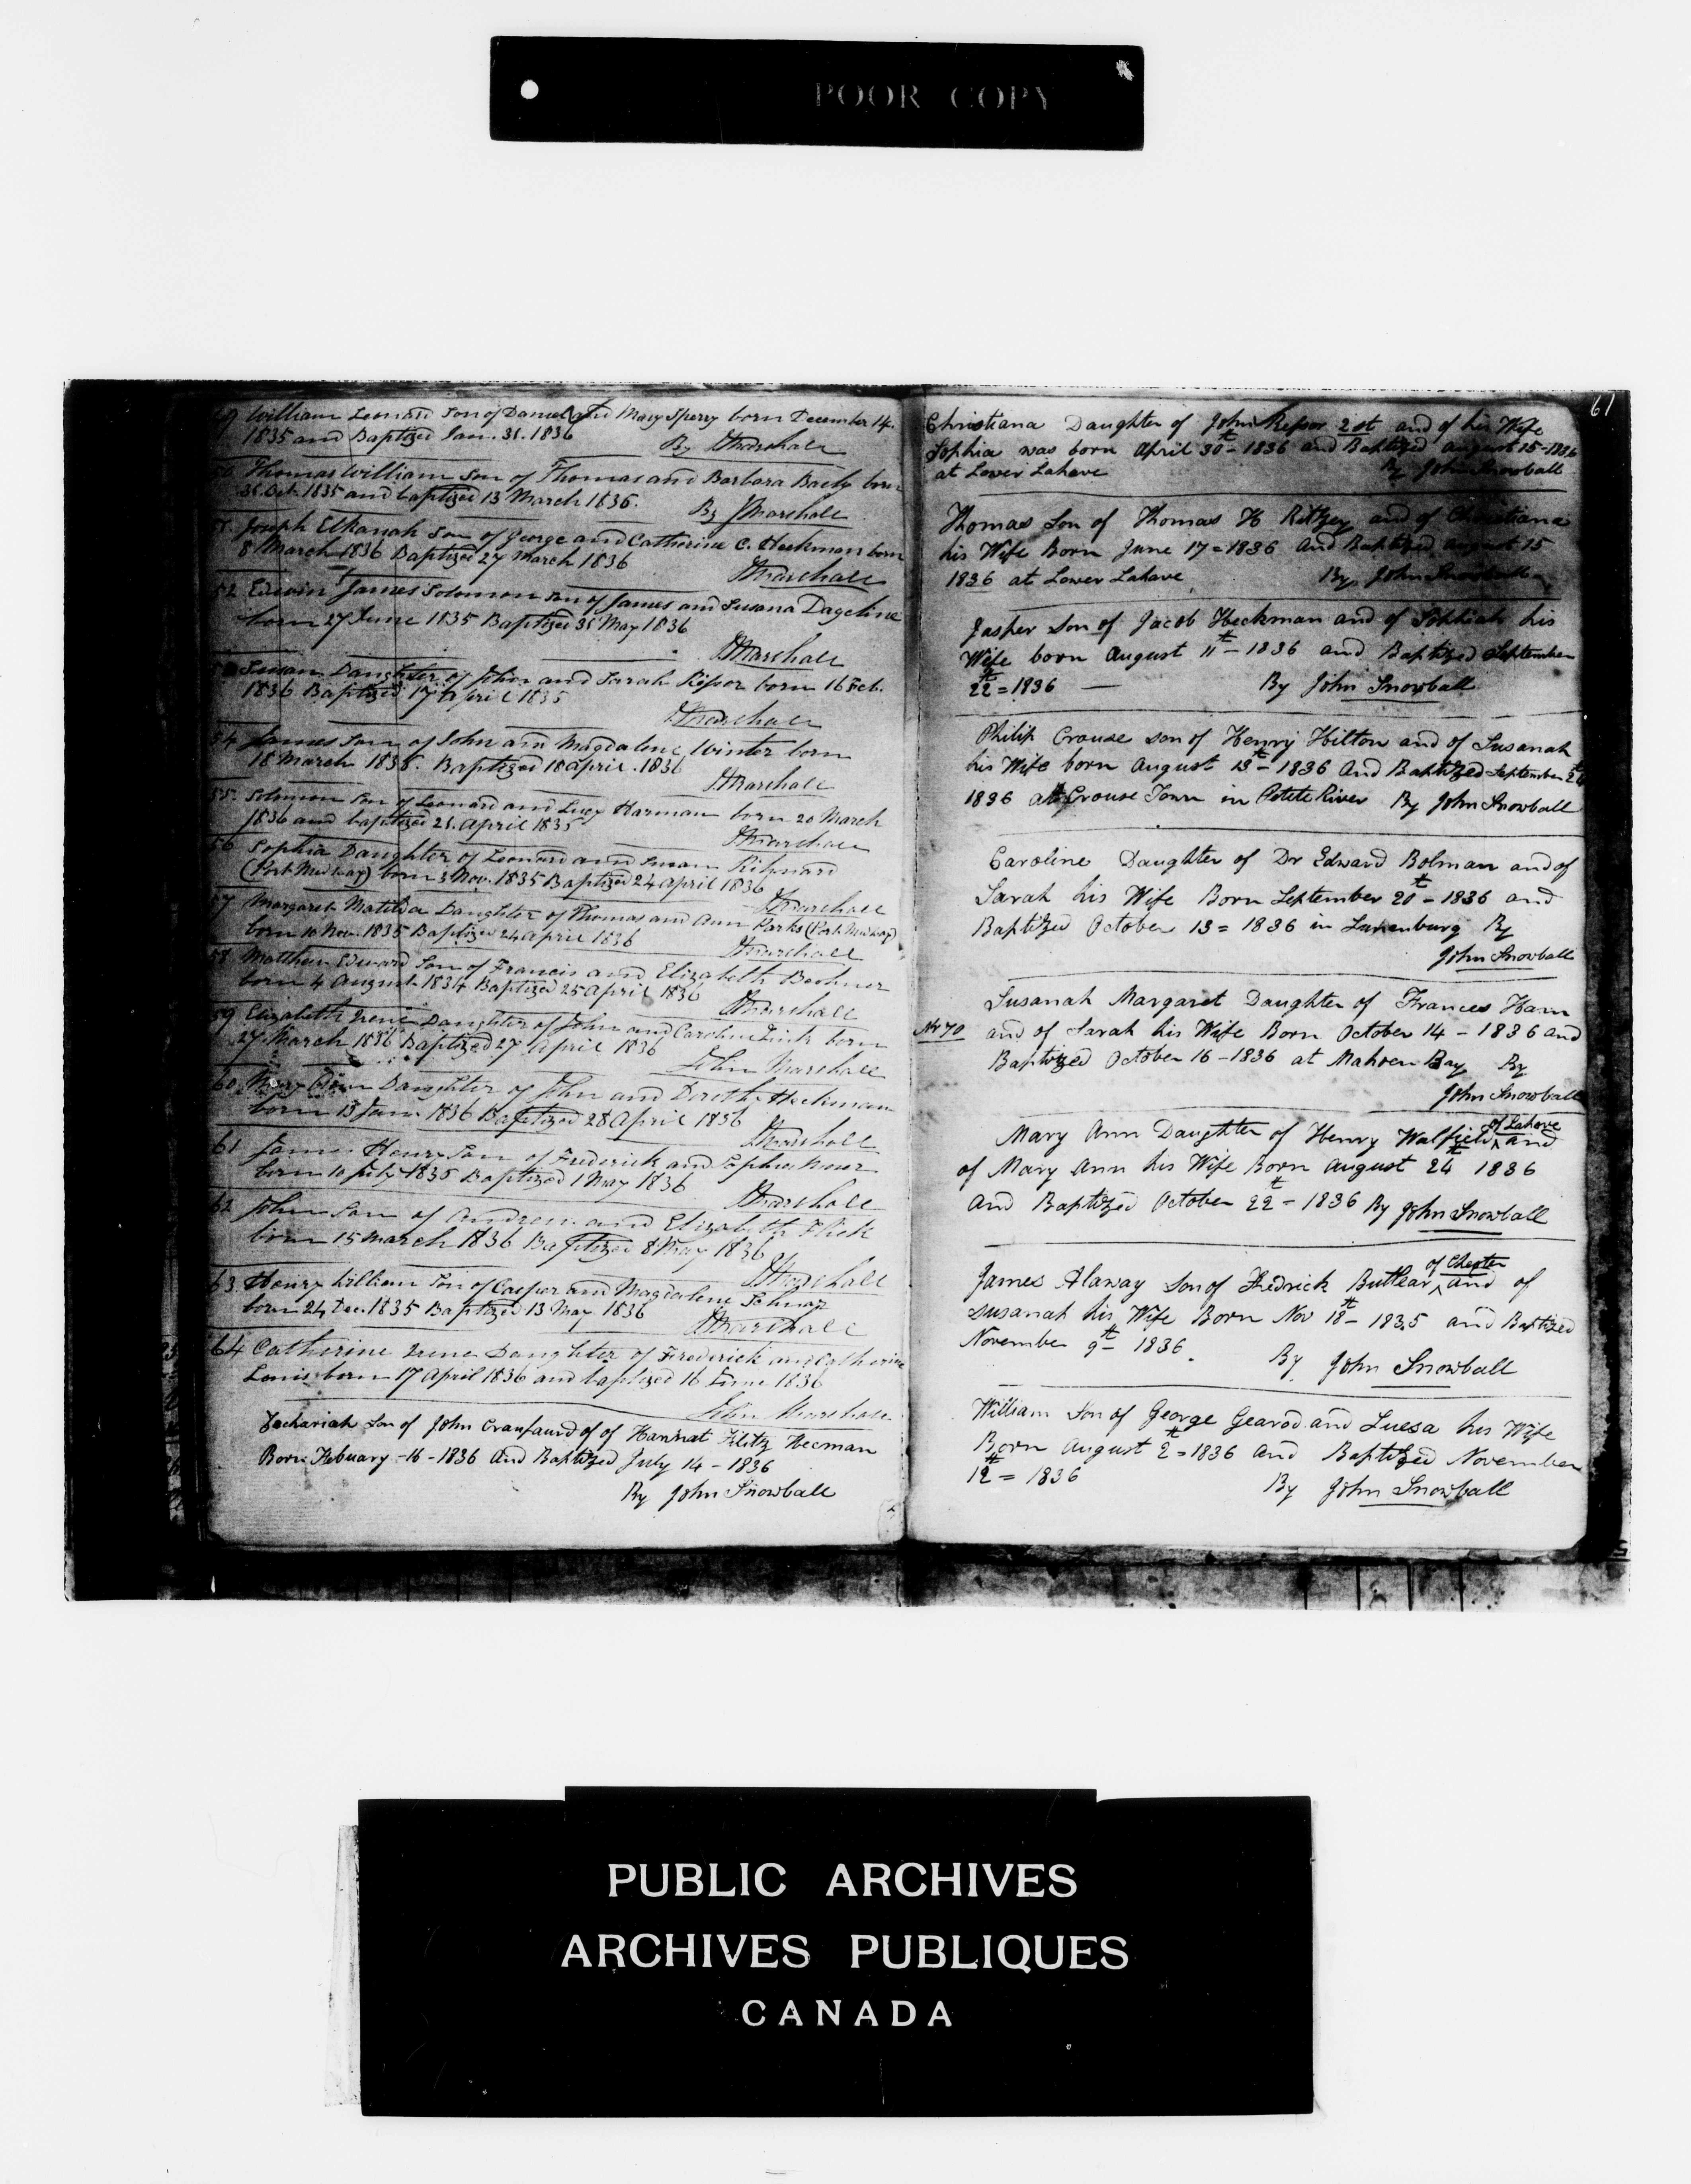 POOR COPY
61
49 William Leonard Son of Daniel and Mary Sperry born December 14.
1835 and Baptized Jan. 31. 1836
By J Marshall
50 Thomas William Son of Thomas and Barbara Baily born
31. Oct. 1835 and baptized 13 March 1836.
By J Marshall
51. Joseph Elkanah Son of George and Catherine C. Heckman born
8 March 1836 Baptized 27 March 1836
J Marshall
52 Edwin James Solomon Son of James and Susana Dageline
born 27 June 1835 Baptized 31 May 1836
J Marshall
Susan Daughter of John and Sarah born 16 Feb.
1836 Baptized 17 April 1835
J Marshall
54 James Son of John and Magdalene Winter born
18 March 1836. Baptized 18 april. 1836
J Marshall
55. Solomon Son of Leonard and Lucy Harman born 20 March
1836 and baptized 21. April 1835
J Marshall
56 Sophia Daughter of Leonard and Susan
(Port Medway) born 3 Nov. 1835 Baptized 24 April 1836
J Marshall
57 Margaret Matilda Daughter of Thomas and Ann Parks (Port Medway)
born 10 Nov. 1835 Baptized 24 April 1836
J Marshall
58 Matthew Edward Son of Francis and Elizabeth Boehner
born 4 August 1834 Baptized 25 April 1836
J Marshall
59 Elizabeth Irene Daughter of John and Caroline born
27 March 1836 Baptized 27 April 1836
John Marshall
60 Mary Daughter of John and Doroth Heckman
born 13 Jan. 1836 Baptized 28 April 1836
J Marshall
61 James Henry Son of Frederick and Sophia
born 10 July 1835 Baptized 1 May 1836
J Marshall
62 John Son of Andrew and Elizabeth
born 15 March 1836 Baptized 8 May 1836
J Marshall
63 Henry William Son of Casper and Magdalene Schnap
born 24 Dec. 1835 Baptized 13 May 1836
J Marshall
64 Catherine Irene Daughter of Frederick and Catherine
born 17 April 1836 and baptized 16 June 1836
John Marshall
Zechariah Son of John Craufaurd of of Hannat Hecman
Born Febuary - 16 - 1836 and Baptized July 14 - 1836
By John Snowball
Christiana Daughter of John 2st and of his Wife
Sophia was born April 30th - 1836 and Baptized august 15 - 1836
at Lower Lahave By John Snowball
Thomas Son of Thomas H Ritzey and of Christiana
his Wife Born June 17 = 1836 and Baptized august 15
1836 at Lower Lahave By John Snowball
Jasper Son of Jacob Heckman and of Sophiah his
Wife born august 11th - 1836 and Baptized September
22th = 1836 — By John Snowball
Philip Crouse son of Henry Hilton and of Susanah
his Wife born August 13th - 1836 and Baptized September
1836 at Crouse Town in Petete River By John Snowball
Caroline Daughter of Dr Edward Bolman and of
Sarah his Wife Born September 20th - 1836 and
Baptized October 13 = 1836 in Lunenburg By
John Snowball
Susanah Margaret Daughter of Frances Ham
No 70 and of Sarah his Wife Born October 14 - 1836 and
Baptized October 16 - 1836 at Mahoen Bay By
John Snowball
of Lahave
Mary Ann Daughter of Henry Walfield ^ and
of Mary Ann his Wife Born august 24th 1836
and Baptized October 22th - 1836 By John Snowball
of Chester
James Alaway Son of Fredrick Butlear ^ and of
Susanah his Wife Born Nov 18th - 1835 and Baptized
November 9th 1836. By John Snowball
William Son of George Gearod and Luesa his Wife
Born August 2th = 1836 and Baptized November
12th = 1836 By John Snowball
PUBLIC ARCHIVES
ARCHIVES PUBLIQUES
CANADA